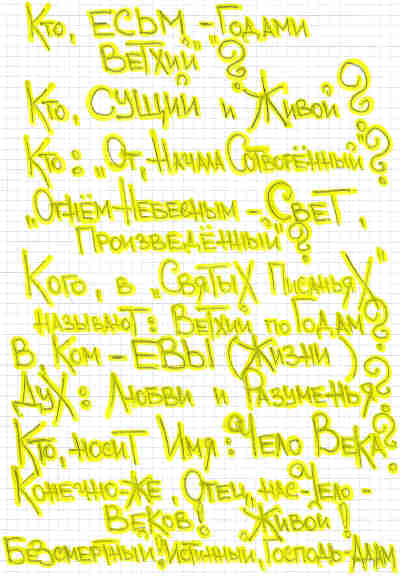 Кто, ЕСЬМ, - Годами
"Ветхий"?
Кто, Сущий и Живой?
Кто: "От, - Начала Сотворённый"?
"Огнём-Небесным -, Свет,
Произведённый"?
Кого, в "Святых Писаньях"
называют: Ветхий по Годам?
В, Ком - ЕВЫ (Жизни)
Дух: Любви и Разуменья?
Кто, носит Имя: Чело Века?
Конечно-же, Отец, нас-Чело -
Веков! Живой!
Безсмертный, Истинный, Господь-Адам